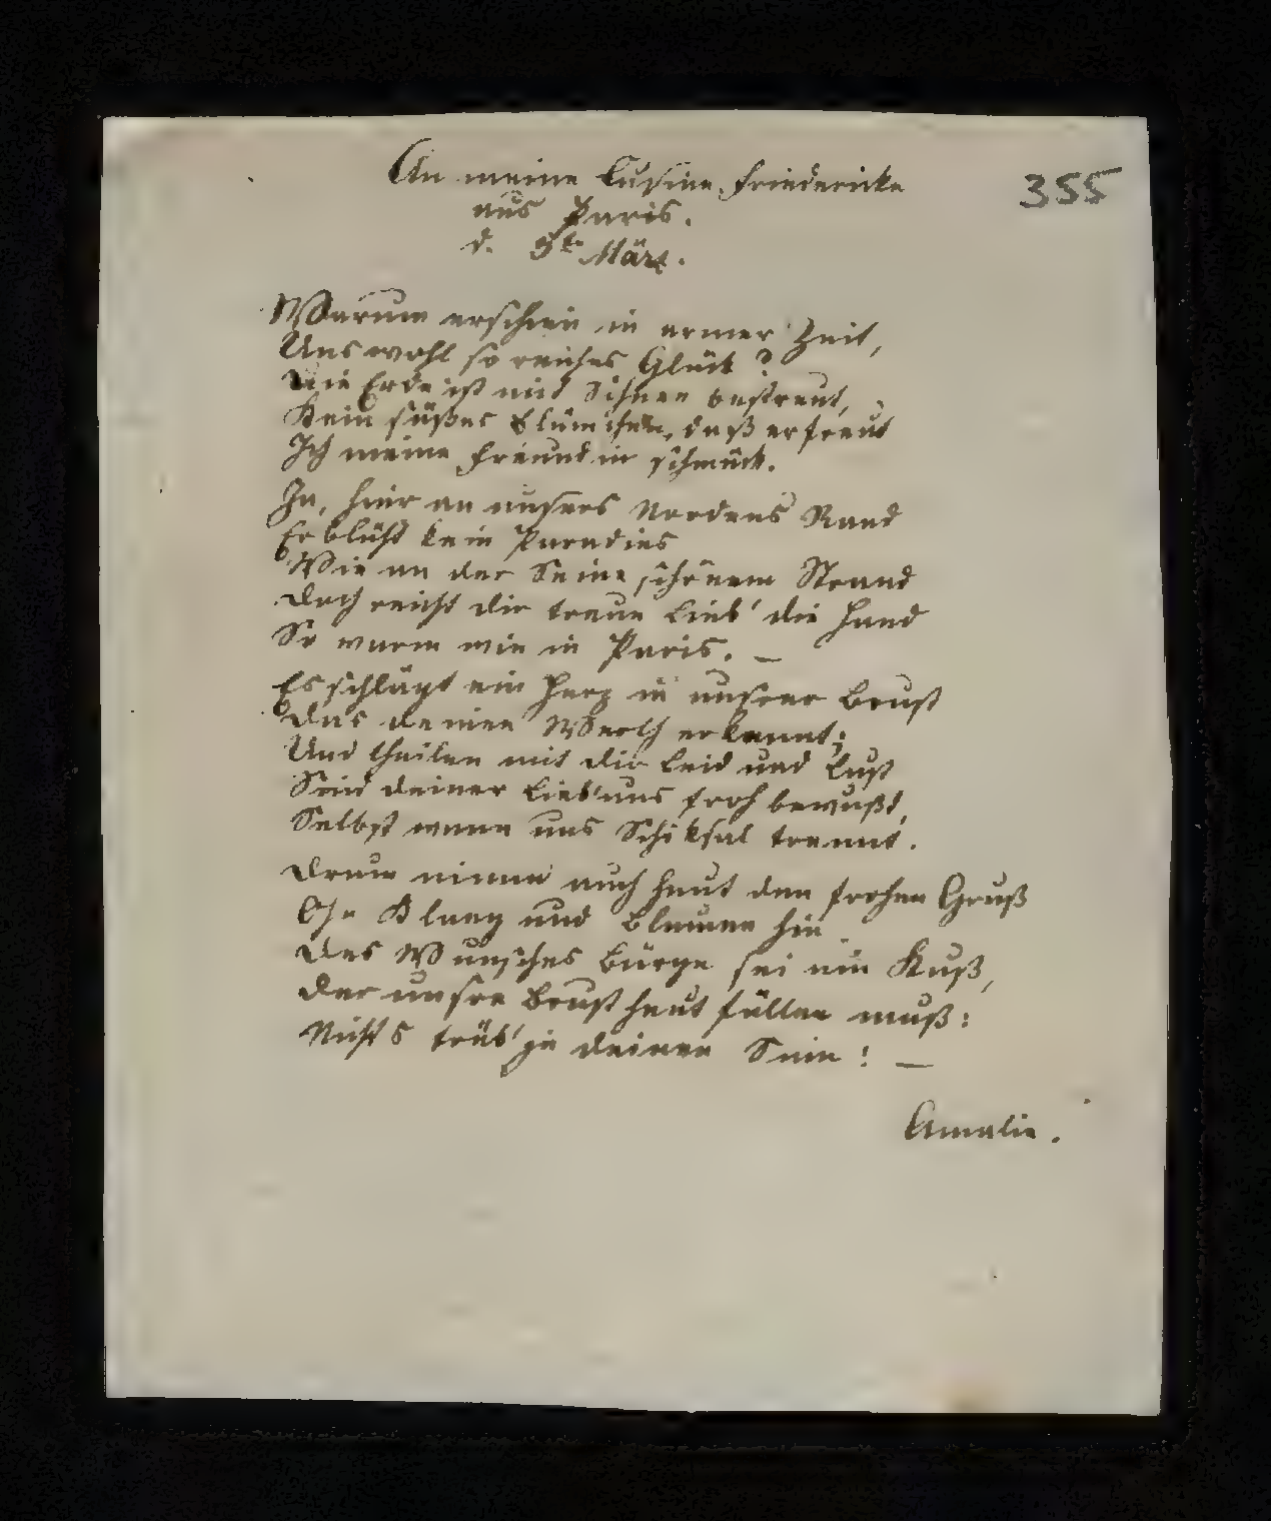 An meine Cusine Friedericke
355
aus Paris.
d. 5te März.
Warum erschien in armer Zeit,
Uns wohl so reiches Glück?
Die Erde ist mit Schnee bestreut,
Kein süßes Blümchen, daß erfreut
Ich meine Freundin schmück.
Ja, hier an unsers Nordens Rand
Erblüht kein Paradies
Wie an der Seine schönem Strand
Doch reicht dir treue Lieb' die Hand
So warm wie in Paris. _
Es schlägt ein Herz in unsrer Brust
Das deinen Werth erkennt;
Und theilen mit dir Leid und Lust
Sind deiner Lieb' uns froh bewußt,
Selbst wenn uns Schiksal trennt.
Drum nimm auch heut den frohen Gruß
Ohn Klang und Blumen hin
Des Wunsches Bürge sei ein Kuß,
Der unsre Brust heut füllen muß:
Nichts trüb' je deinen Sinn! _
Amalie.